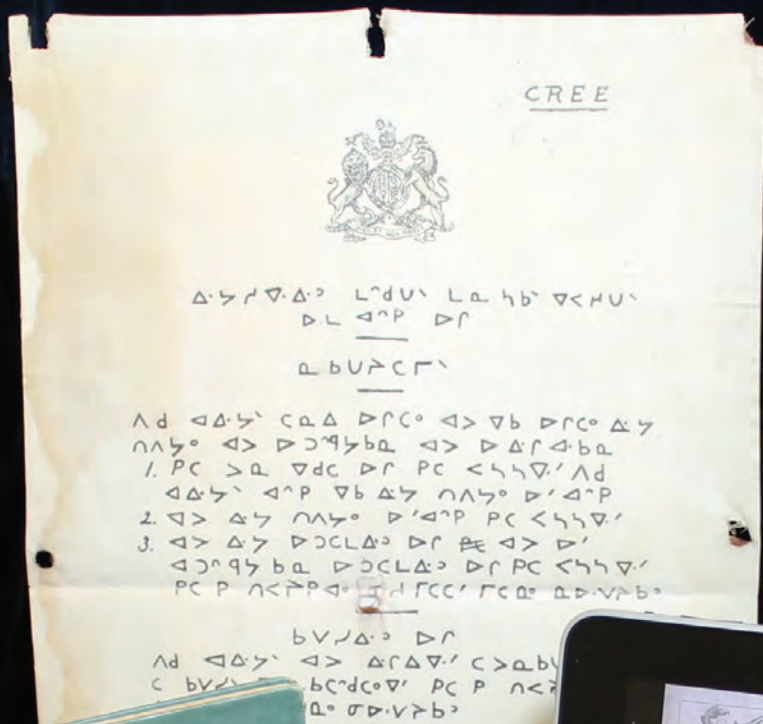 CREE
ᐃᐧᔭᓱᐁᐧᐃᐧᐣ ᒪᐢᑯᑌᐠ ᒪᓇ ᓴᑲᐠ ᐁᐸᓱᑌᐠ
ᐅᒪ ᐊᐢᑭ ᐅᒋ
ᓇᑲᑌᔨᑕᒥᐠ
ᐱᑯ ᐊᐃᐧᔭᐠ ᑕᓇᐃ ᐅᒋᑕᐤ ᐊᐳ ᐁᑲ ᐅᒋᑕᐤ ᐃᐧᔭ
ᑎᐱᔭᐤ ᐊᐳ ᐅᑐᐢᑫᔭᑲᓇ ᐊᐳ ᐅᐃᐧᒋᐊᐧᑲᓇ
1. ᑭᑕ ᐳᓇ ᐁᑯᑕ ᐅᒋ ᑭᑕ ᐸᓴᓴᐁᐧᐟ ᐱᑯ
ᐊᐃᐧᔭᐠ ᐊᐢᑭ ᐁᑲ ᐃᐧᔭ ᑎᐱᔭᐤ ᐅᐟᐊᐢᑭ
2. ᐊᐳ ᐃᐧᔭ ᑎᐱᔭᐤ ᐅᐟᐊᐢᑭ ᑭᑕ ᐸᓴᓴᐁᐧᐟ
3. ᐊᐳ ᐃᐧᔭ ᐅᑐᑕᒪᐃᐧᐣ ᐅᒋ ᐊᐳ ᐅᐟ
ᐊᑐᐢᑫᔭᑲᓇ ᐅᑐᑕᒪᐃᐧᐣ ᐅᒋ ᑭᑕ ᐸᓴᓴᐁᐧᐟ
ᑭᑕ ᑭ ᑎᐸᔨᑭᐊᐤ ᒥᑕᑕᐟ ᒥᑕᓇᐤ ᓇᐅᐧᐯᔭᑲᐣ
ᑲᐯᓱᐃᐧᐣ ᐅᒋ
ᐱᑯ ᐊᐃᐧᔭᐠ ᐊᐳ ᐃᒋᐃᐁᐧᐟ
ᑕ ᑲᐯᓱ ᑲᑕᐢᑯᑕᐤᐁᐟ ᑭᑕ ᑭ
ᓂᐅᐧᐯᔭᑲᐣ